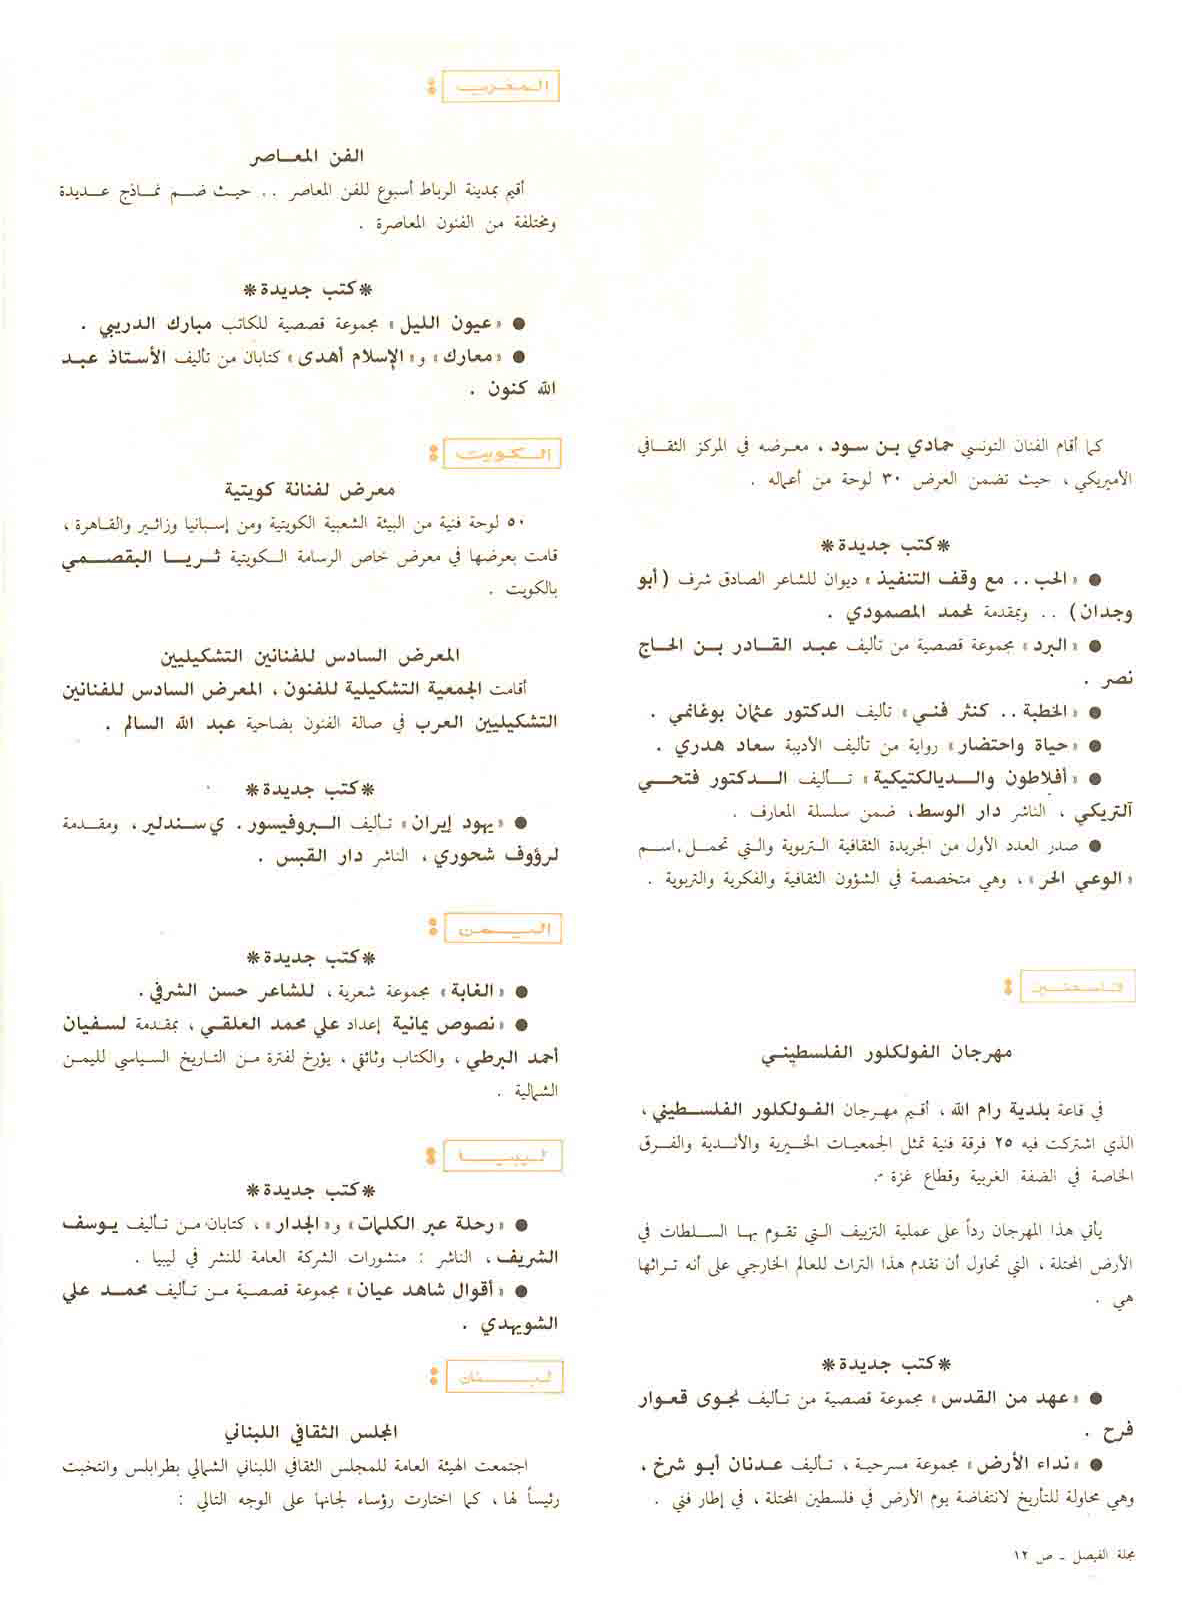 كما أقام الفنان التونسي حمادي بن سود ، معرضه في المركز الثقافي
الأميريكي ، حيث تضمن العرض ٣٠ لوحة من أعماله .
* كتب جديدة *
● «الحب .. مع وقف التنفيذ» ديوان للشاعر الصادق شرف (أبو
وجدان) .. وبمقدمة لمحمد المصمودي .
● «البرد» مجموعة قصصية من تأليف عبد القادر بن الحاج
نصر .
● «الخطبة .. كنثر فني» تأليف الدكتور عثمان بوغانمي .
● «حياة واحتضار» رواية من تأليف الأديبة سعاد هدري .
● «أفلاطون والديالكتيكية» تأليف الدكتور فتحي
التريكي ، الناشر دار الوسط ، ضمن سلسلة المعارف .
● صدر العدد الأول من الجريدة الثقافية التربوية والتي تحمل اسم
«الوعي الحر» ، وهي متخصصة في الشؤون الثقافية والفكرية والتربوية .
فلسطين :
مهرجان الفولكلور الفلسطيني
في قاعة بلدية رام الله ، أقيم مهرجان الفولكلور الفلسطيني ،
الذي اشتركت فيه ٢٥ فرقة فنية تمثل الجمعيات الخيرية والأندية والفرق
الخاصة في الضفة الغربية وقطاع غزة .
يأتي هذا المهرجان رداً على عملية التزييف التي تقوم بها السلطات في
الأرض المحتلة ، التي تحاول أن تقدم هذا التراث للعالم الخارجي على أنه تراثها
هي .
* كتب جديدة *
● «عهد من القدس» مجموعة قصصية من تأليف نجوى قعوار
فرح .
● «نداء الأرض» مجموعة مسرحية ، تأليف عدنان أبو شرخ ،
وهي محاولة للتأريخ لانتفاضة يوم الأرض في فلسطين المحتلة ، في إطار فني .
المغرب :
الفن المعاصر
أقيم بمدينة الرباط أسبوع للفن المعاصر .. حيث ضم نماذج عديدة
ومختلفة من الفنون المعاصرة .
* كتب جديدة *
● «عيون الليل» مجموعة قصصية للكاتب مبارك الدريبي .
● «معارك» و«الإسلام أهدى» كتابان من تأليف الأستاذ عبد
الله كنون .
الكويت :
معرض لفنانة كويتية
٥٠ لوحة فنية من البيئة الشعبية الكويتية ومن إسبانيا وزائير والقاهرة ،
قامت بعرضها في معرض خاص الرسامة الكويتية ثريا البقصمي
بالكويت .
المعرض السادس للفنانين التشكيليين
أقامت الجمعية التشكيلية للفنون ، المعرض السادس للفنانين
التشكيليين العرب في صالة الفنون بضاحية عبد الله السالم .
* كتب جديدة *
● «يهود إيران» تأليف البروفيسور . ي سندلير ، ومقدمة
لرؤوف شحوري ، الناشر دار القبس .
اليمن :
* كتب جديدة *
● «الغابة» مجموعة شعرية ، للشاعر حسن الشرفي .
● «نصوص يمانية إعداد علي محمد العلقي ، بمقدمة لسفيان
أحمد البرطي ، والكتاب وثائقي ، يؤرخ لفترة من التاريخ السياسي لليمن
الشمالية .
ليبيا :
* كتب جديدة *
● «رحلة عبر الكلمات» و«الجدار» ، كتابان من تأليف يوسف
الشريف ، الناشر : منشورات الشركة العامة للنشر في ليبيا .
● «أقوال شاهد عيان» مجموعة قصصية من تأليف محمد علي
الشويهدي .
لبنان :
المجلس الثقافي اللبناني
اجتمعت الهيئة العامة للمجلس الثقافي اللبناني الشمالي بطرابلس وانتخبت
رئيساً لها ، كما اختارت رؤساء لجانها على الوجه التالي :
مجلة الفيصل ـ ص ١٢